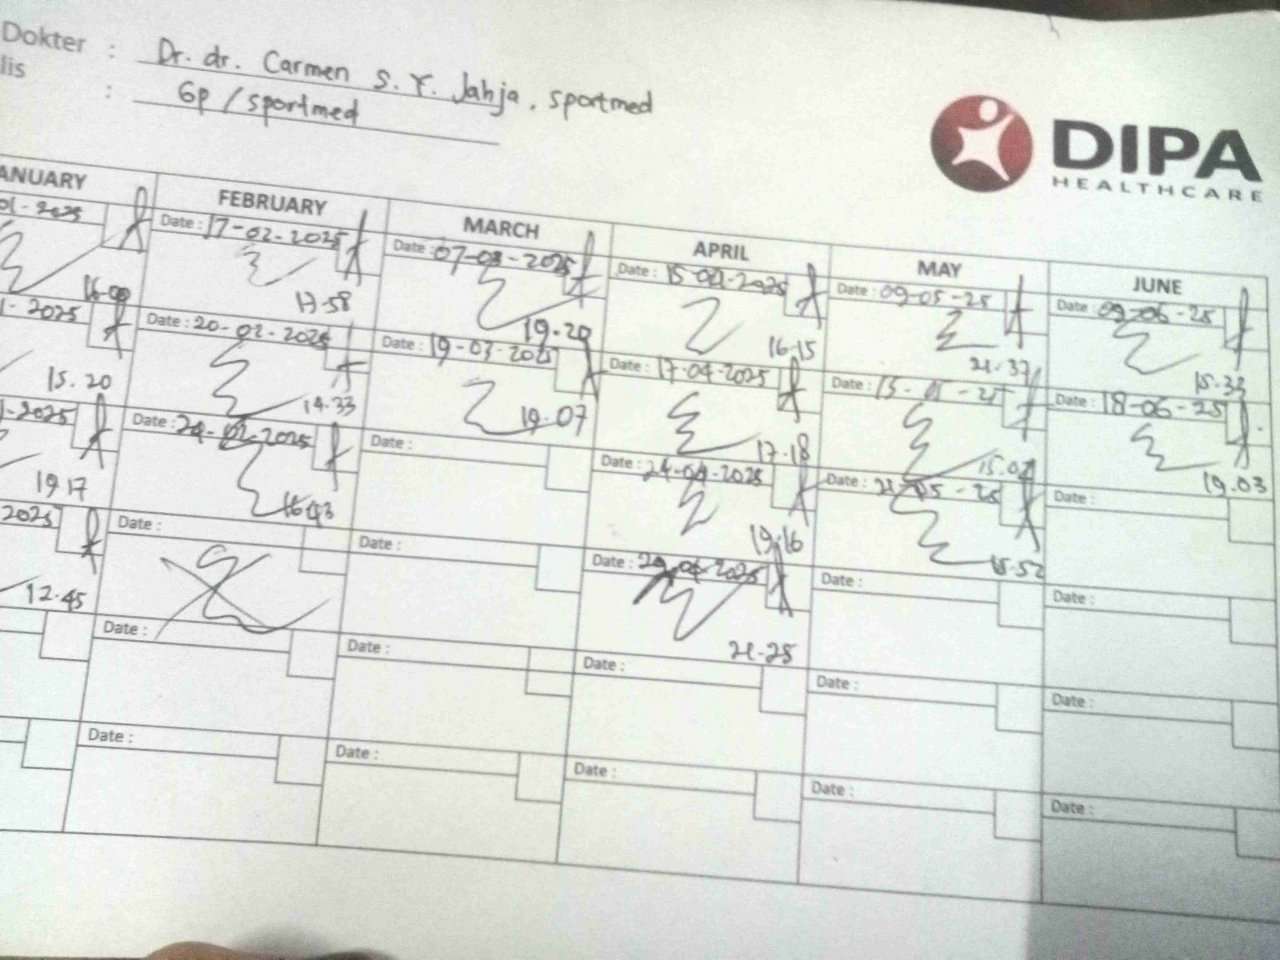 Dokter : Dr. dr. Carmen S. Y. Jahja, sportmed
lis : Gp / sportmed
DIPA
HEALTHCARE
ANUARY FEBRUARY MARCH APRIL MAY JUNE
01-2025 Date : 17-02-2025 Date : 07-03-2025 Date : 15-04-2025 Date : 09-05-25 Date : 09-06-25
16-00 17-58 19.20 16-15 21.37 15.33
1-2025 Date : 20-02-2025 Date : 19-03-2025 Date : 17-04-2025 Date : 15-05-25 Date : 18-06-25
15.20 14.33 19.07 17.18 15.07 19.03
1-2025 Date : 24-02-2025 Date : Date : 24-04-2025 Date : 21-05-25 Date :
19.17 16.43 19.16 15.52
2025 Date : Date : Date : 29.04-2025 Date : Date :
12.45 21.25
Date : Date : Date : Date : Date :
Date : Date : Date : Date : Date :